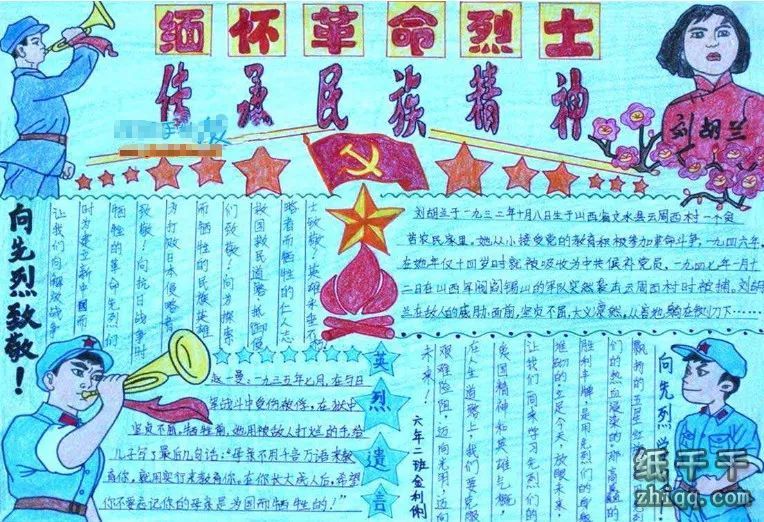 缅怀革命烈士
传承民族精神
刘胡兰
向先烈致敬！
士致敬！英雄永垂不朽
略者而牺牲的仁人志
救国救民道路、抵御侵
们致敬！向为探索
而牺牲的民族英雄
为打败日本侵略者
致敬！向抗日战争时
牺牲的革命先烈们
时为建立新中国而
让我们向解放战争
刘胡兰于一九三二年十月八日生于山西省文水县云周西村一个贫
苦农民家里。她从小接受党的教育积极参加革命斗争。一九四六年
在她年仅十四岁时就被吸收为中共候补党员。一九四七年一月十
二日在山西军阀阎锡山的军队突然袭击云周西村时被捕。刘胡
兰在敌人的威胁面前，坚贞不屈，大义凛然，从容地躺在铡刀下……
英烈遗言
赵一曼：一九三五年七月，在与日
军战斗中受伤被俘，在狱中
坚贞不屈，牺牲前，她用被敌人打烂的手给
儿子写下最后几句话：“母亲不用千言万语来教
育你，就用实行来教育你。在你长大成人后，希望
你不要忘记你的母亲是为国而牺牲的！”
向先烈学
飘扬的五星红
们的热血浸染的，那高矗的
胜利丰碑，是用先烈们的身躯
堆砌的。立足今天，放眼未来，
让我们一同来学习先烈们的
爱国精神和英雄气概。
在人生道路上，我们要克服
艰难险阻，迈向光明，迈向
未来！
六年二班
纸千千
zhiqq.com